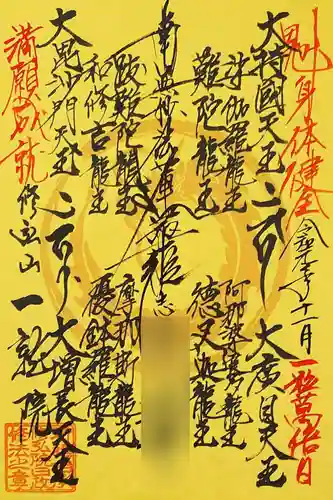 身体健全
令和元年十一月 一粒萬倍日
大持國天王
大廣目天王
娑伽羅龍王
阿那婆達多龍王
難陀龍王
徳叉迦龍王
南無妙法蓮華経
跋難陀龍王
摩那斯龍王
和修吉龍王
優鉢羅龍王
大毘沙門天王
大増長天王
満願成就